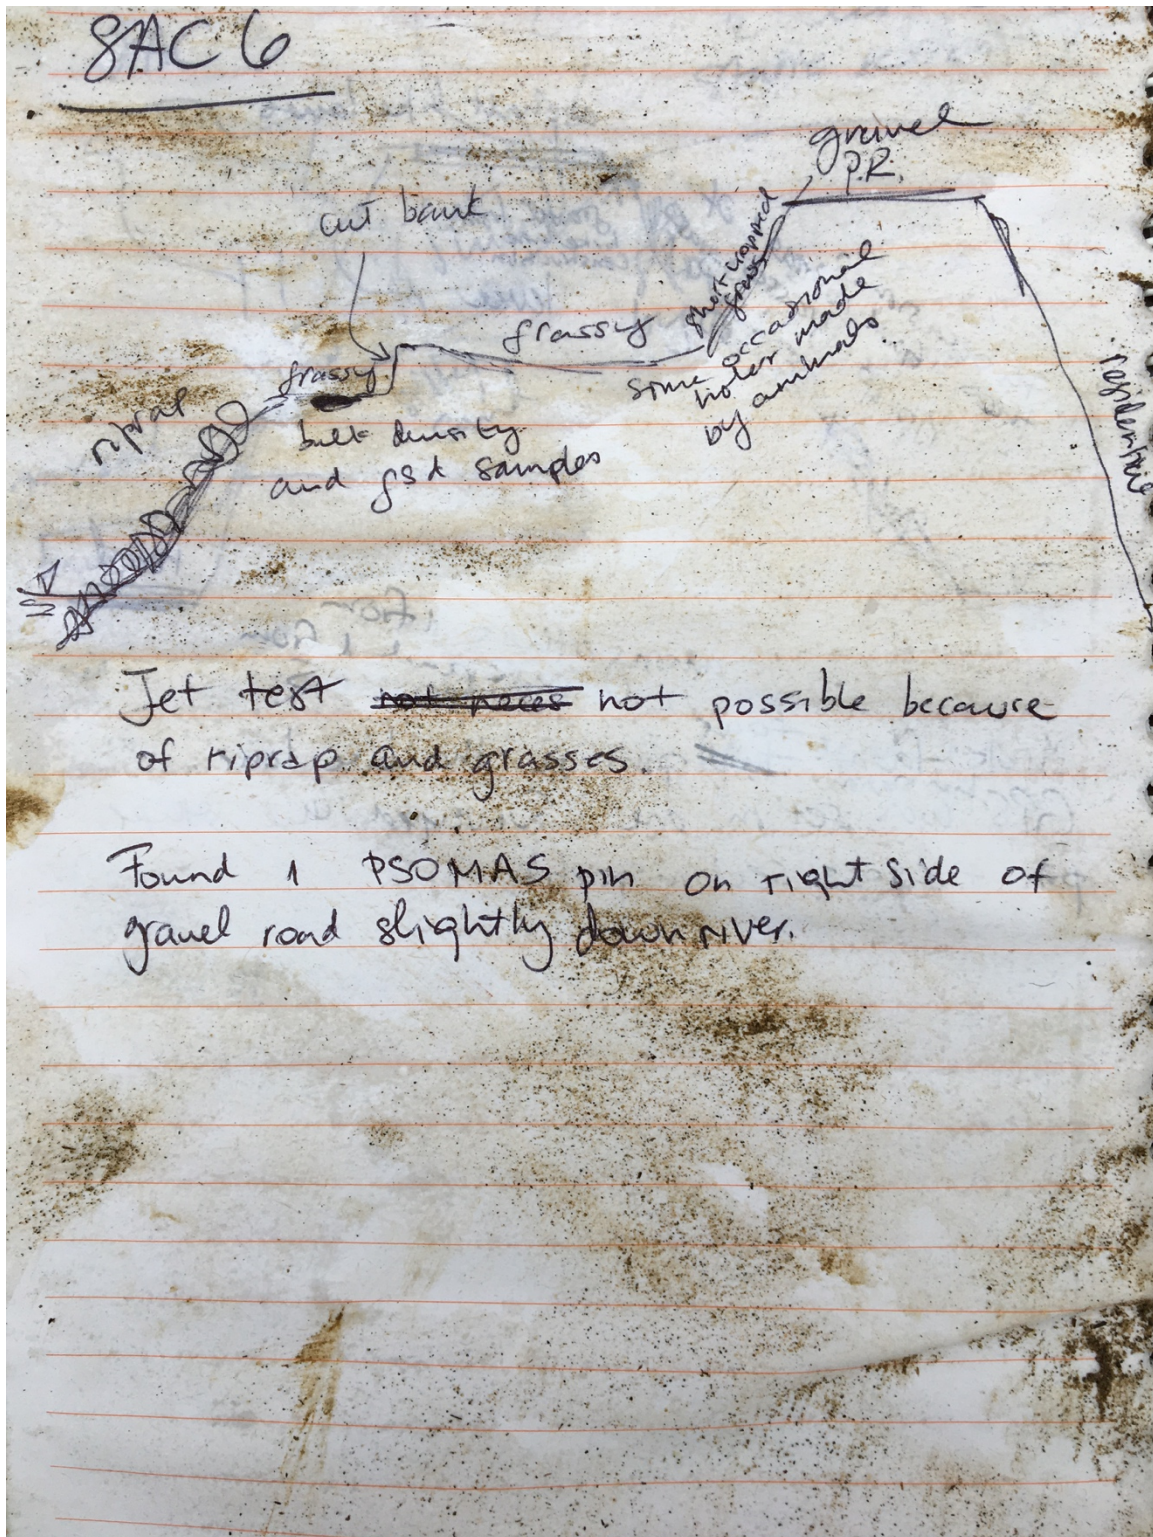 SAC 6
gravel
P.R.
cut bank
short cropped
grass
grassy
some occasional
holes made
by animals
grassy
riprap
residential
bulk density
and gsd samples
Jet test not neces not possible because
of riprap and grasses.
Found 1 PSOMAS pin on right side of
gravel road slightly downriver.